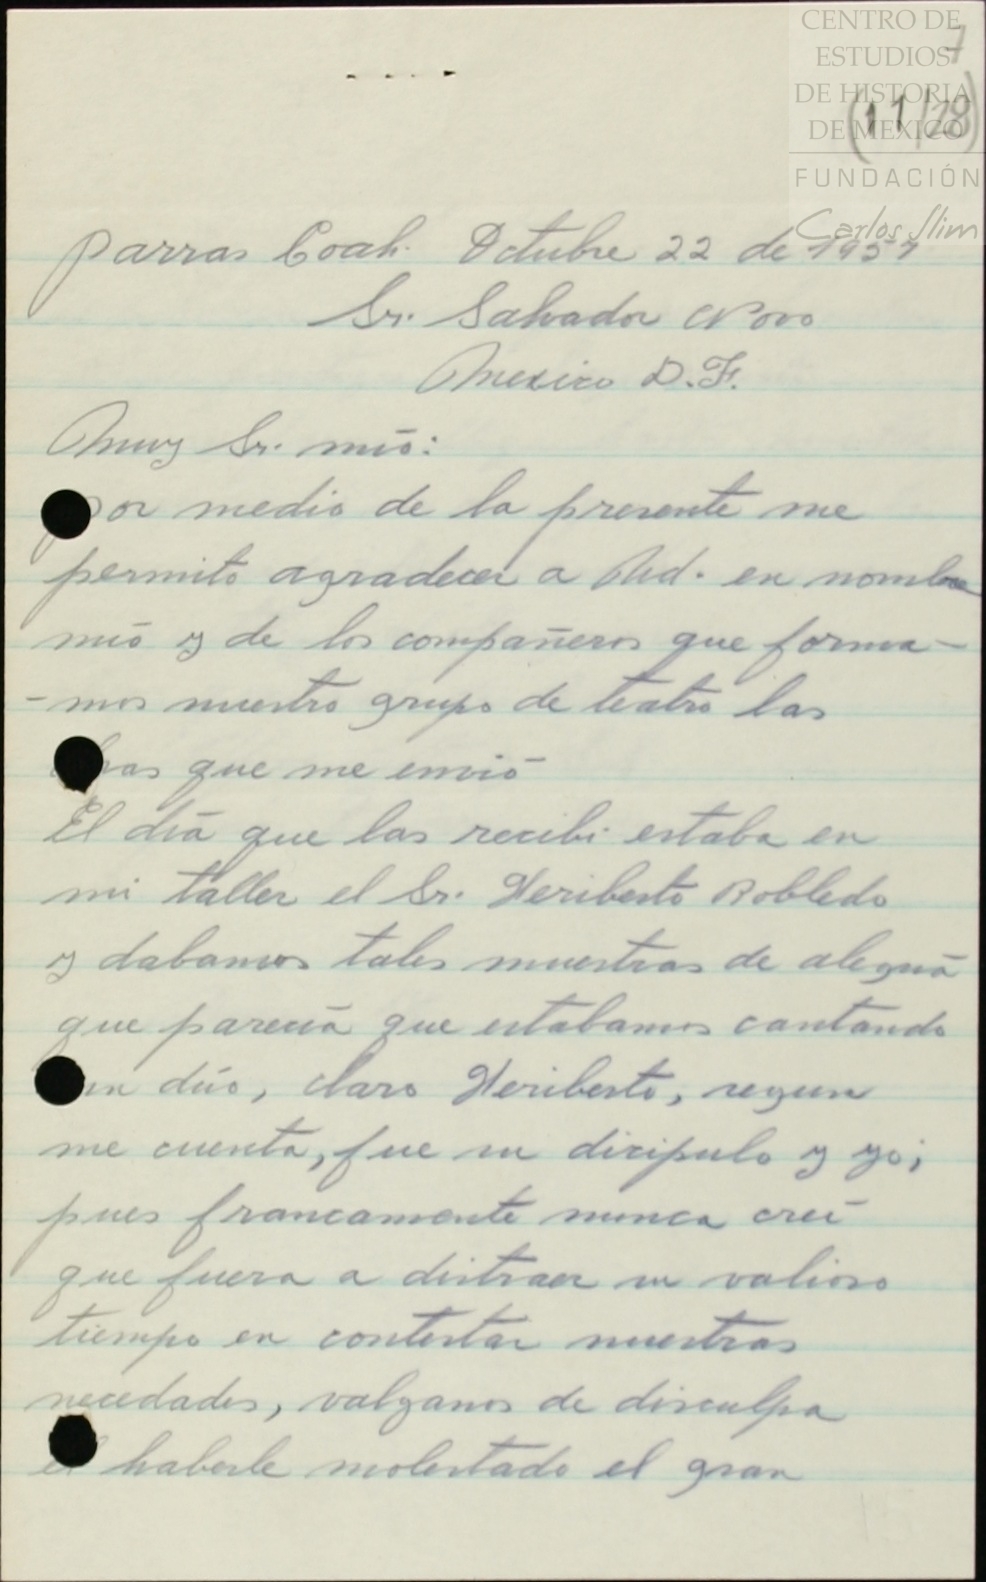 CENTRO DE
ESTUDIOS
DE HISTORIA
DE MEXICO
FUNDACIÓN
Carlos Slim
7
(11/28)
Parras Coah. Octubre 22 de 1957
Sr. Salvador Novo
Mexico D.F.
Muy Sr. mió:
por medio de la presente me
permito agradecer a Ud. en nombre
mió y de los compañeros que forma-
-mos nuestro grupo de teatro las
obras que me envió
El diá que las recibi estaba en
mi taller el Sr. Heriberto Robledo
y dabamos tales muestras de alegriá
que pareciá que estabamos cantando
un dúo, claro Heriberto, segun
me cuenta, fue su dicipulo y yo;
pues francamente nunca creí
que fuera a distraer su valioso
tiempo en contestar nuestras
necedades, valganos de disculpa
el haberle molestado el gran